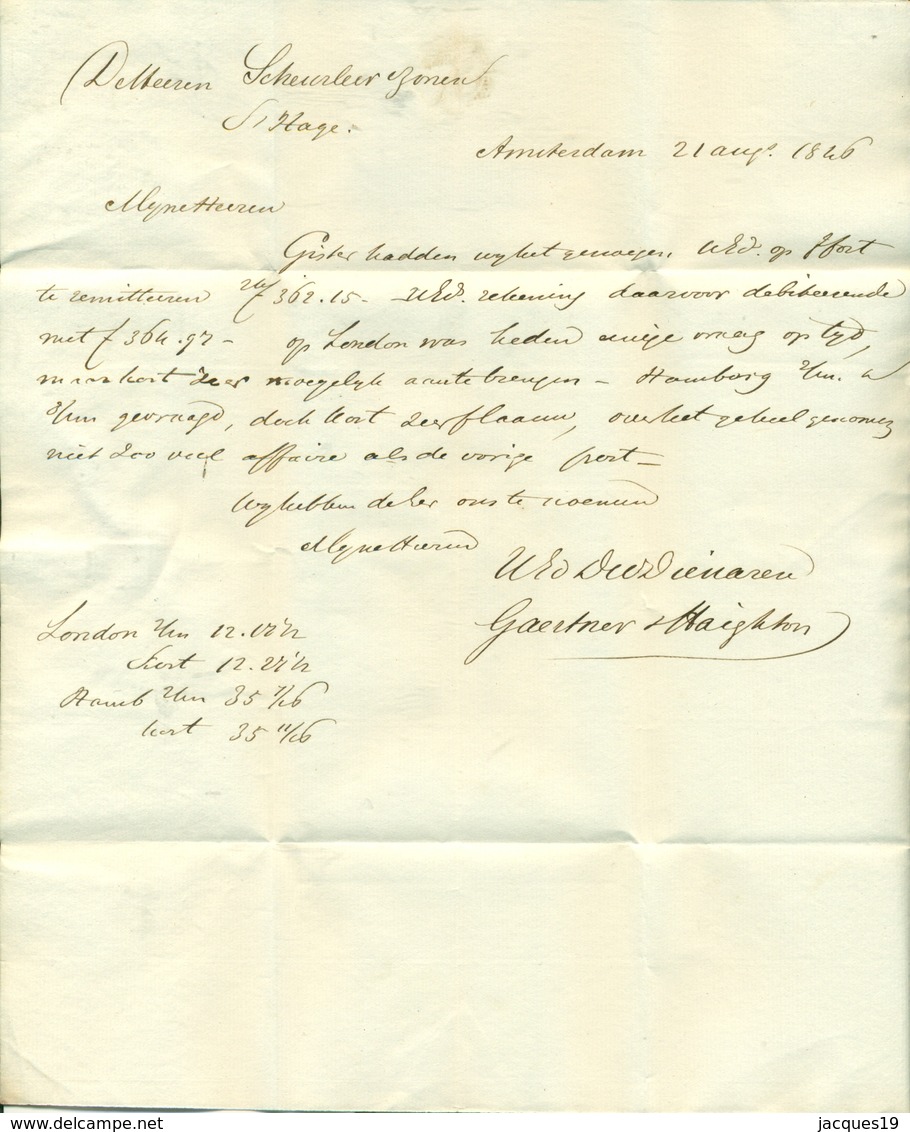 De Heeren Scheurleer & Zonen
S'Hage.
Amsterdam 21 augs. 1846
Myne Heeren
Gister hadden wy het genoegen UEd. op ffort
te remitteeren 362.15 - UEd. rekening daarvoor debiteerende
met f 364.97 - op London was heden enige vraag op tyd,
maar kort zeer moegelyk aantebrengen - Hamborg 2/m. a
3/m gevraagd, doch kort zeer flaauw, over het geheel genomen
niet zoo veel affaire als de vorige post -
Wy hebben de Eer ons te noemen
Myne Heeren
UEd DWDienaren
Gaertner & Haighton
London 2/m 12.
Kort 12.
Hamb 2/m 35 7/16
kort 35 11/16
delcampe.net
jacques19